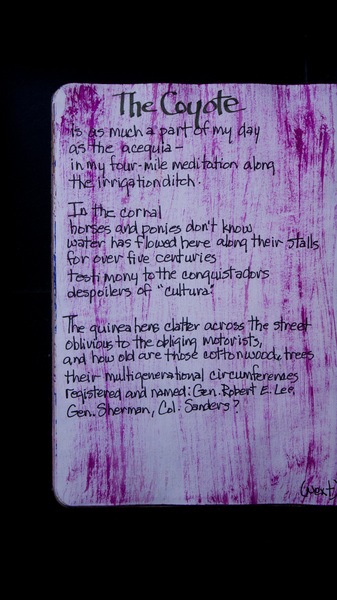 The Coyote
is as much a part of my day
as the acequia –
in my four-mile meditation along
the irrigation ditch.
In the corral
horses and ponies don't know
water has flowed here along their stalls
for over five centuries
testimony to the conquistadors
despoilers of "cultura."
The guinea hens clatter across the street
oblivious to the obliging motorists,
and how old are those cottonwood trees
their multigenerational circumferences
registered and named: Gen. Robert E. Lee,
Gen. Sherman, Col. Sanders?
(next)